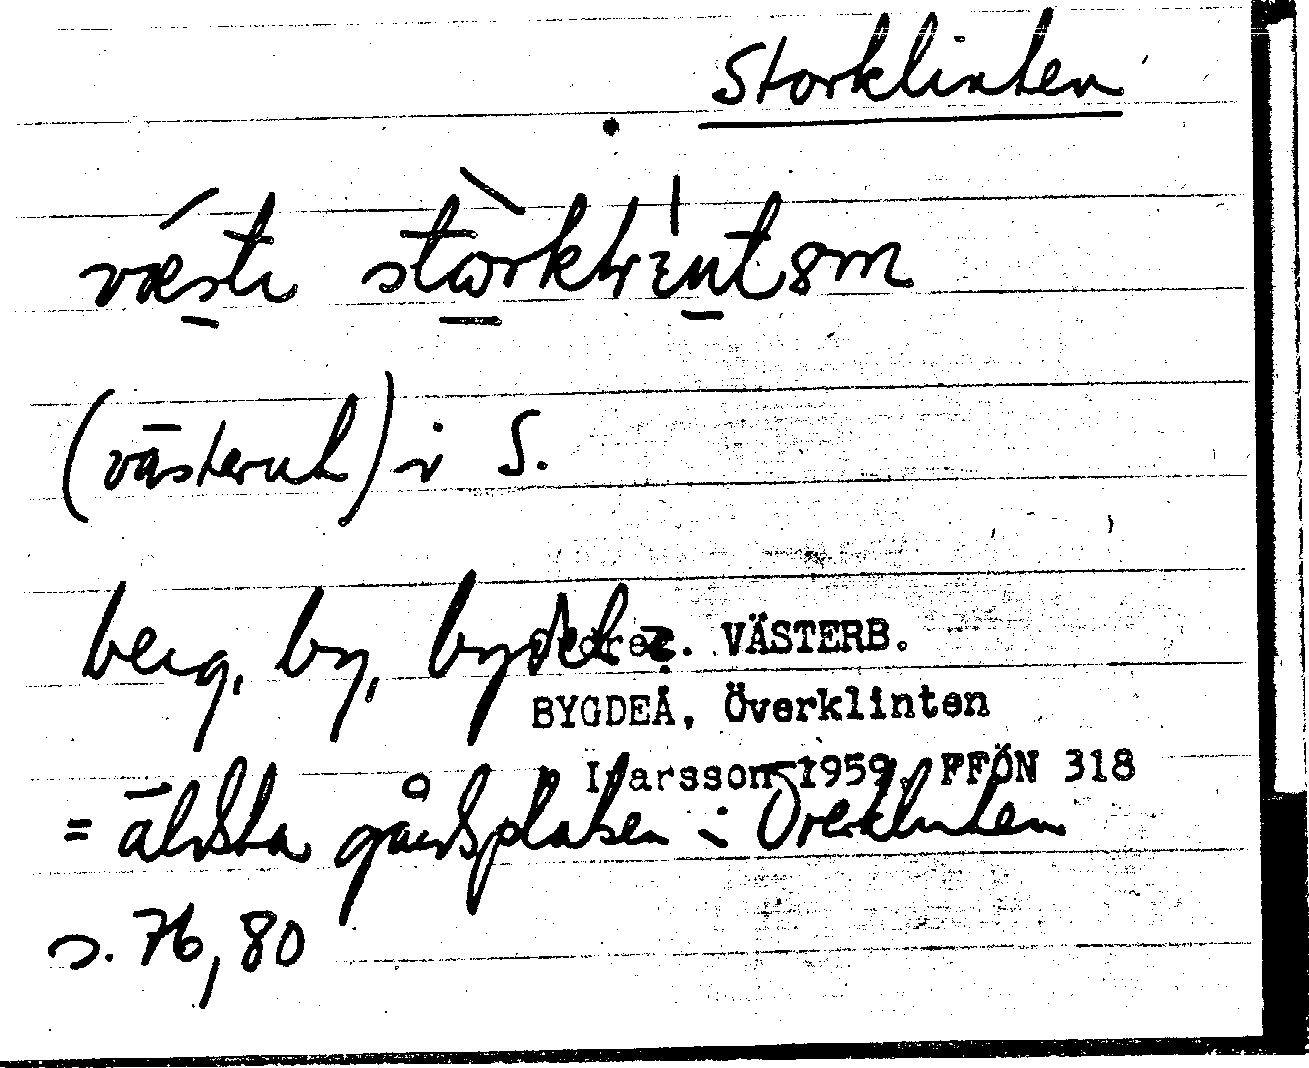 Storklinten
væstı storkliントəm
(västerut) i S.
berg, by, bydel. VÄSTERB.
BYGDEÅ, Överklinten
Larsson 1959, FFÖN 318
= äldsta gårdsplatsen i Överklinten
s. 76, 80